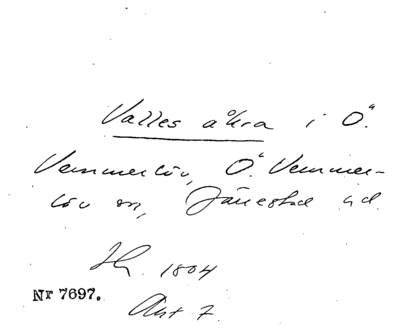 Valles åkra i Ö.
Vemmerlöv, Ö. Vemmer-
löv sn, Järrestad hd.
1804
Nr 7697.
Akt 7